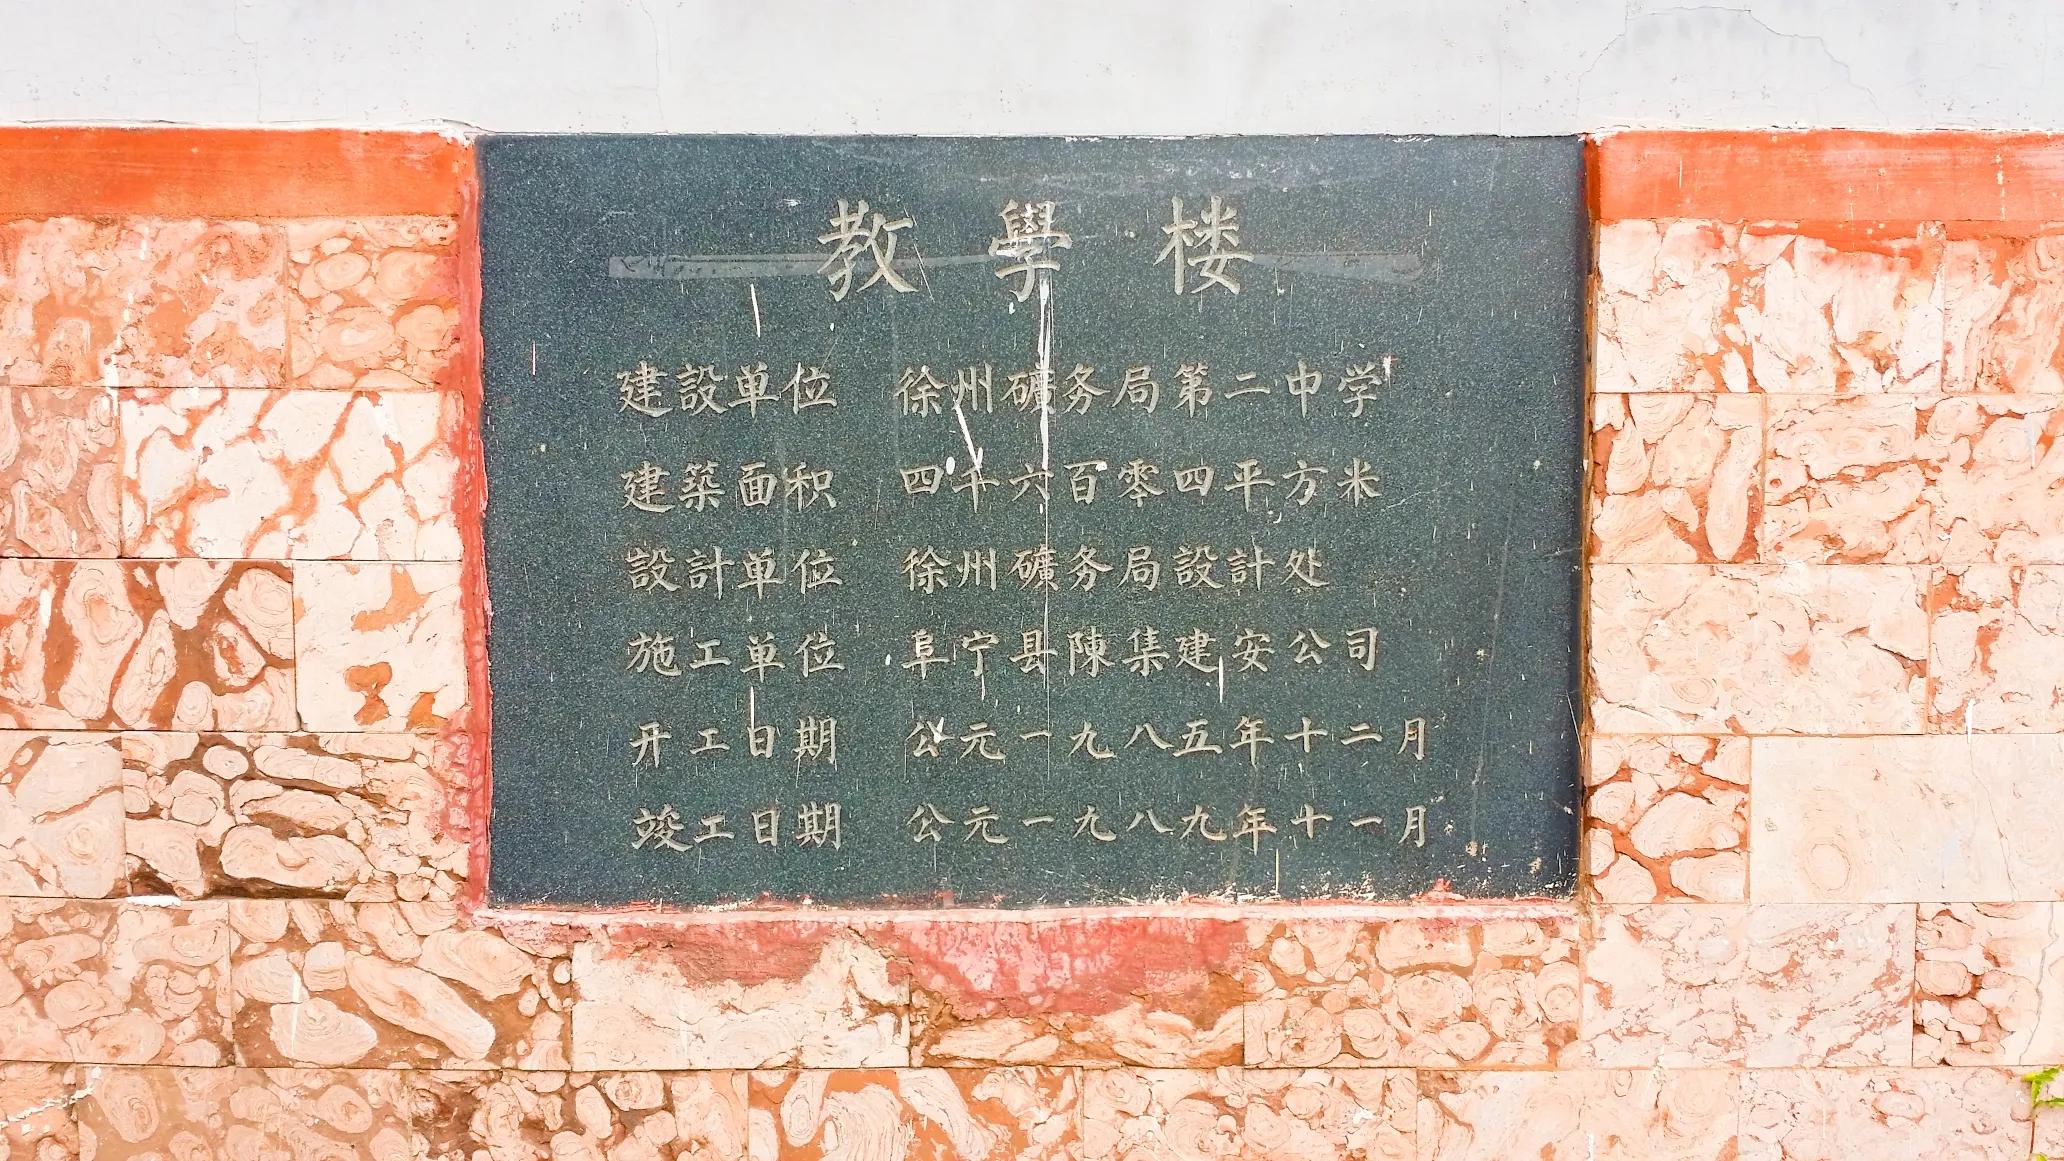 教學楼
建設单位 徐州礦务局第二中学
建築面积 四千六百零四平方米
設計单位 徐州礦务局設計处
施工单位 阜宁县陳集建安公司
开工日期 公元一九八五年十二月
竣工日期 公元一九八九年十一月